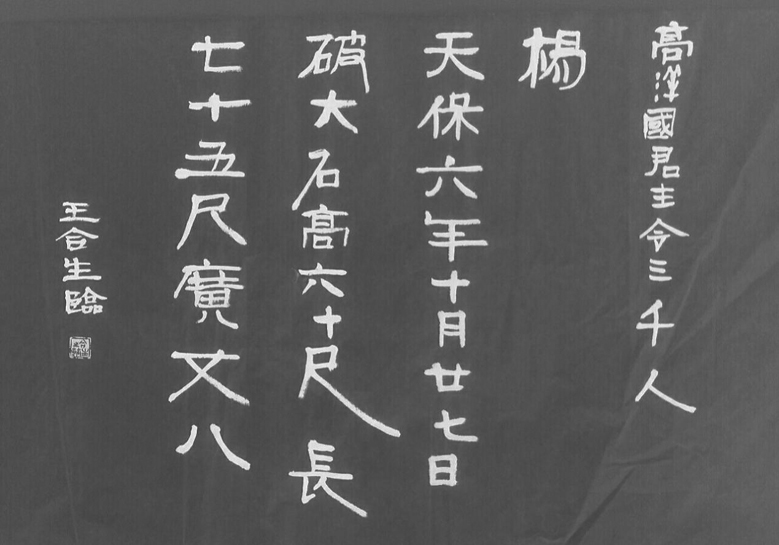 高洋國君主令三千人
楊
天保六年十月廿七日
破大石高六十尺長
七十五尺廣又八
王合生臨